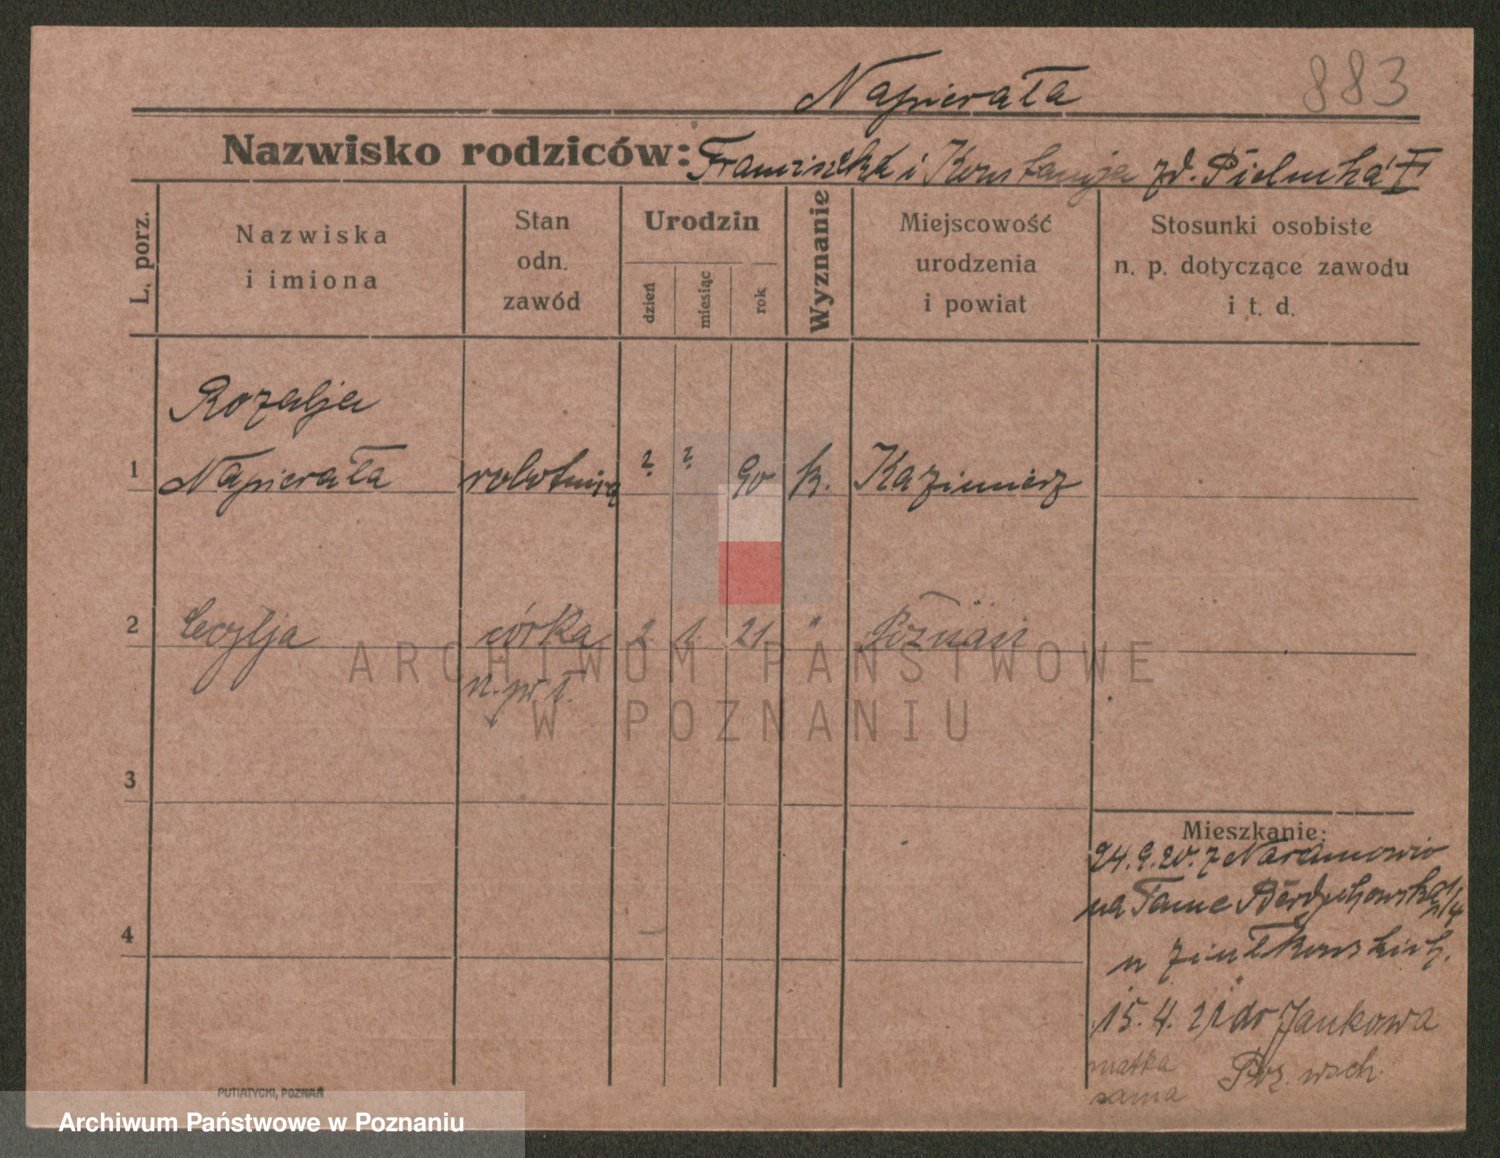 Napierała 883
Nazwisko rodziców: Franciszka i Konstancja zd. Pielucha
L. porz.
Nazwiska
i imiona
Stan
odn.
zawód
Urodzin
dzień
miesiąc
rok
Wyznanie
Miejscowość
urodzenia
i powiat
Stosunki osobiste
n. p. dotyczące zawodu
i t. d.
Rozalja
1 Napierała robotnica ? ? 90 k. Kazimierz
2 Cecylja córka 2 1. 21 " Poznań
ARCHIWUM PAŃSTWOWE
W POZNANIU
3
Mieszkanie:
24.9.20. z Naramowic
na Tame Berdychowska
4
u Ziułkowskich.
15. 4. 21 do Jankowa
matka Poz. wsch.
sama
PUTIATYCKI, POZNAŃ
Archiwum Państwowe w Poznaniu